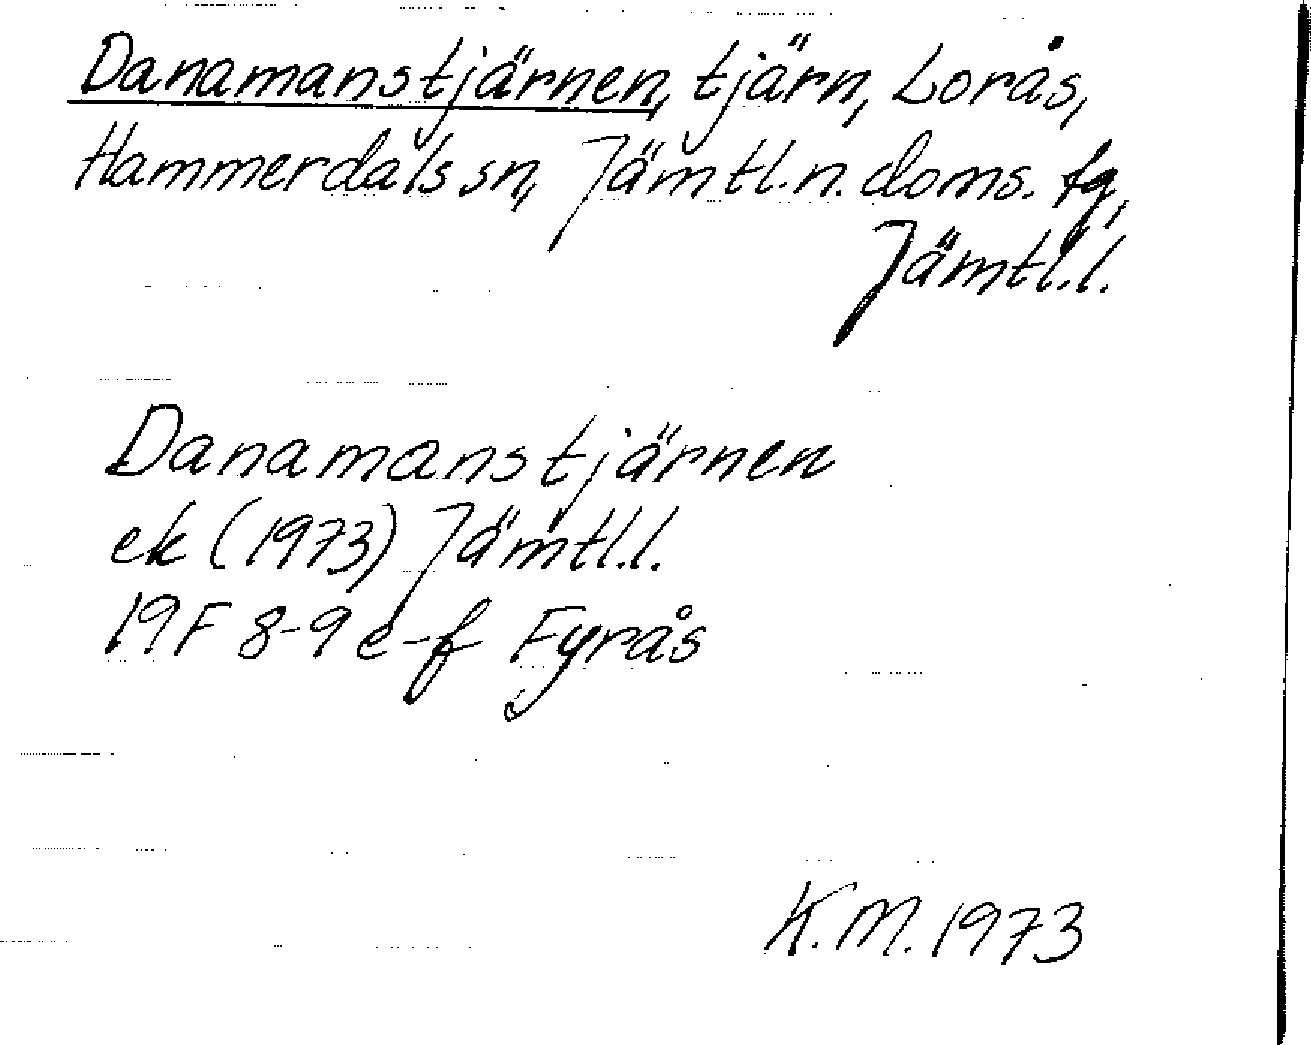 Danamanstjärnen, tjärn, Lorås,
Hammerdals sn, Jämtl. n. doms. fg,
Jämtl. l.
Danamanstjärnen
ek (1973) Jämtl. l.
19F 8-9 e-f Fyrås
K.M. 1973